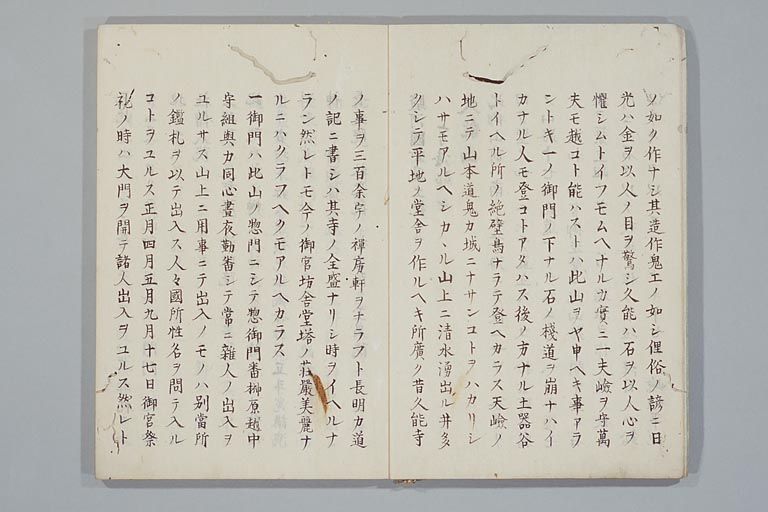 ノ如ク作ナシ其造作鬼工ノ如シ俚俗ノ諺ニ日
光ハ金ヲ以人ノ目ヲ驚シ久能ハ石ヲ以人心ヲ
懼シムトイフモムヘナルカ實ニ一夫嶮ヲ守萬
夫モ越コト能ハストハ此山ヲヤ申ヘキ事アラ
ントキ一ノ御門ノ下ナル石ノ棧道ヲ崩ナハイ
カナル人モ登コトアタハス後ノ方ナル土器谷
トイヘル所ノ絶壁鳥ナラテ登ヘカラス天嶮ノ
地ニテ山本道鬼カ城ニナサンコトヲハカリシ
ハサモアルヘシカヽル山上ニ清水湧出ル井多
クシテ平地ノ堂舎ヲ作ルヘキ所廣ク昔久能寺
ノ事ヲ三百余宇ノ禅房軒ヲナラフト長明カ道
ノ記ニ書シハ其寺ノ全盛ナリシ時ヲイヘルナ
ラン然レトモ今ノ御宮坊舎堂塔ノ荘嚴美麗ナ
ルニハクラフヘクモアルヘカラス
一御門ハ此山ノ惣門ニシテ惣御門番榊原越中
守組與力同心晝夜勤番シテ常ニ雜人ノ出入ヲ
ユルサス山上ニ用事ニテ出入ノモノハ別當所
ノ鑑札ヲ以テ出入ス人々國所性名ヲ問テ入ル
コトヲユルス正月四月五月九月十七日御宮祭
礼ノ時ハ大門ヲ開テ諸人出入ヲユルス然レト